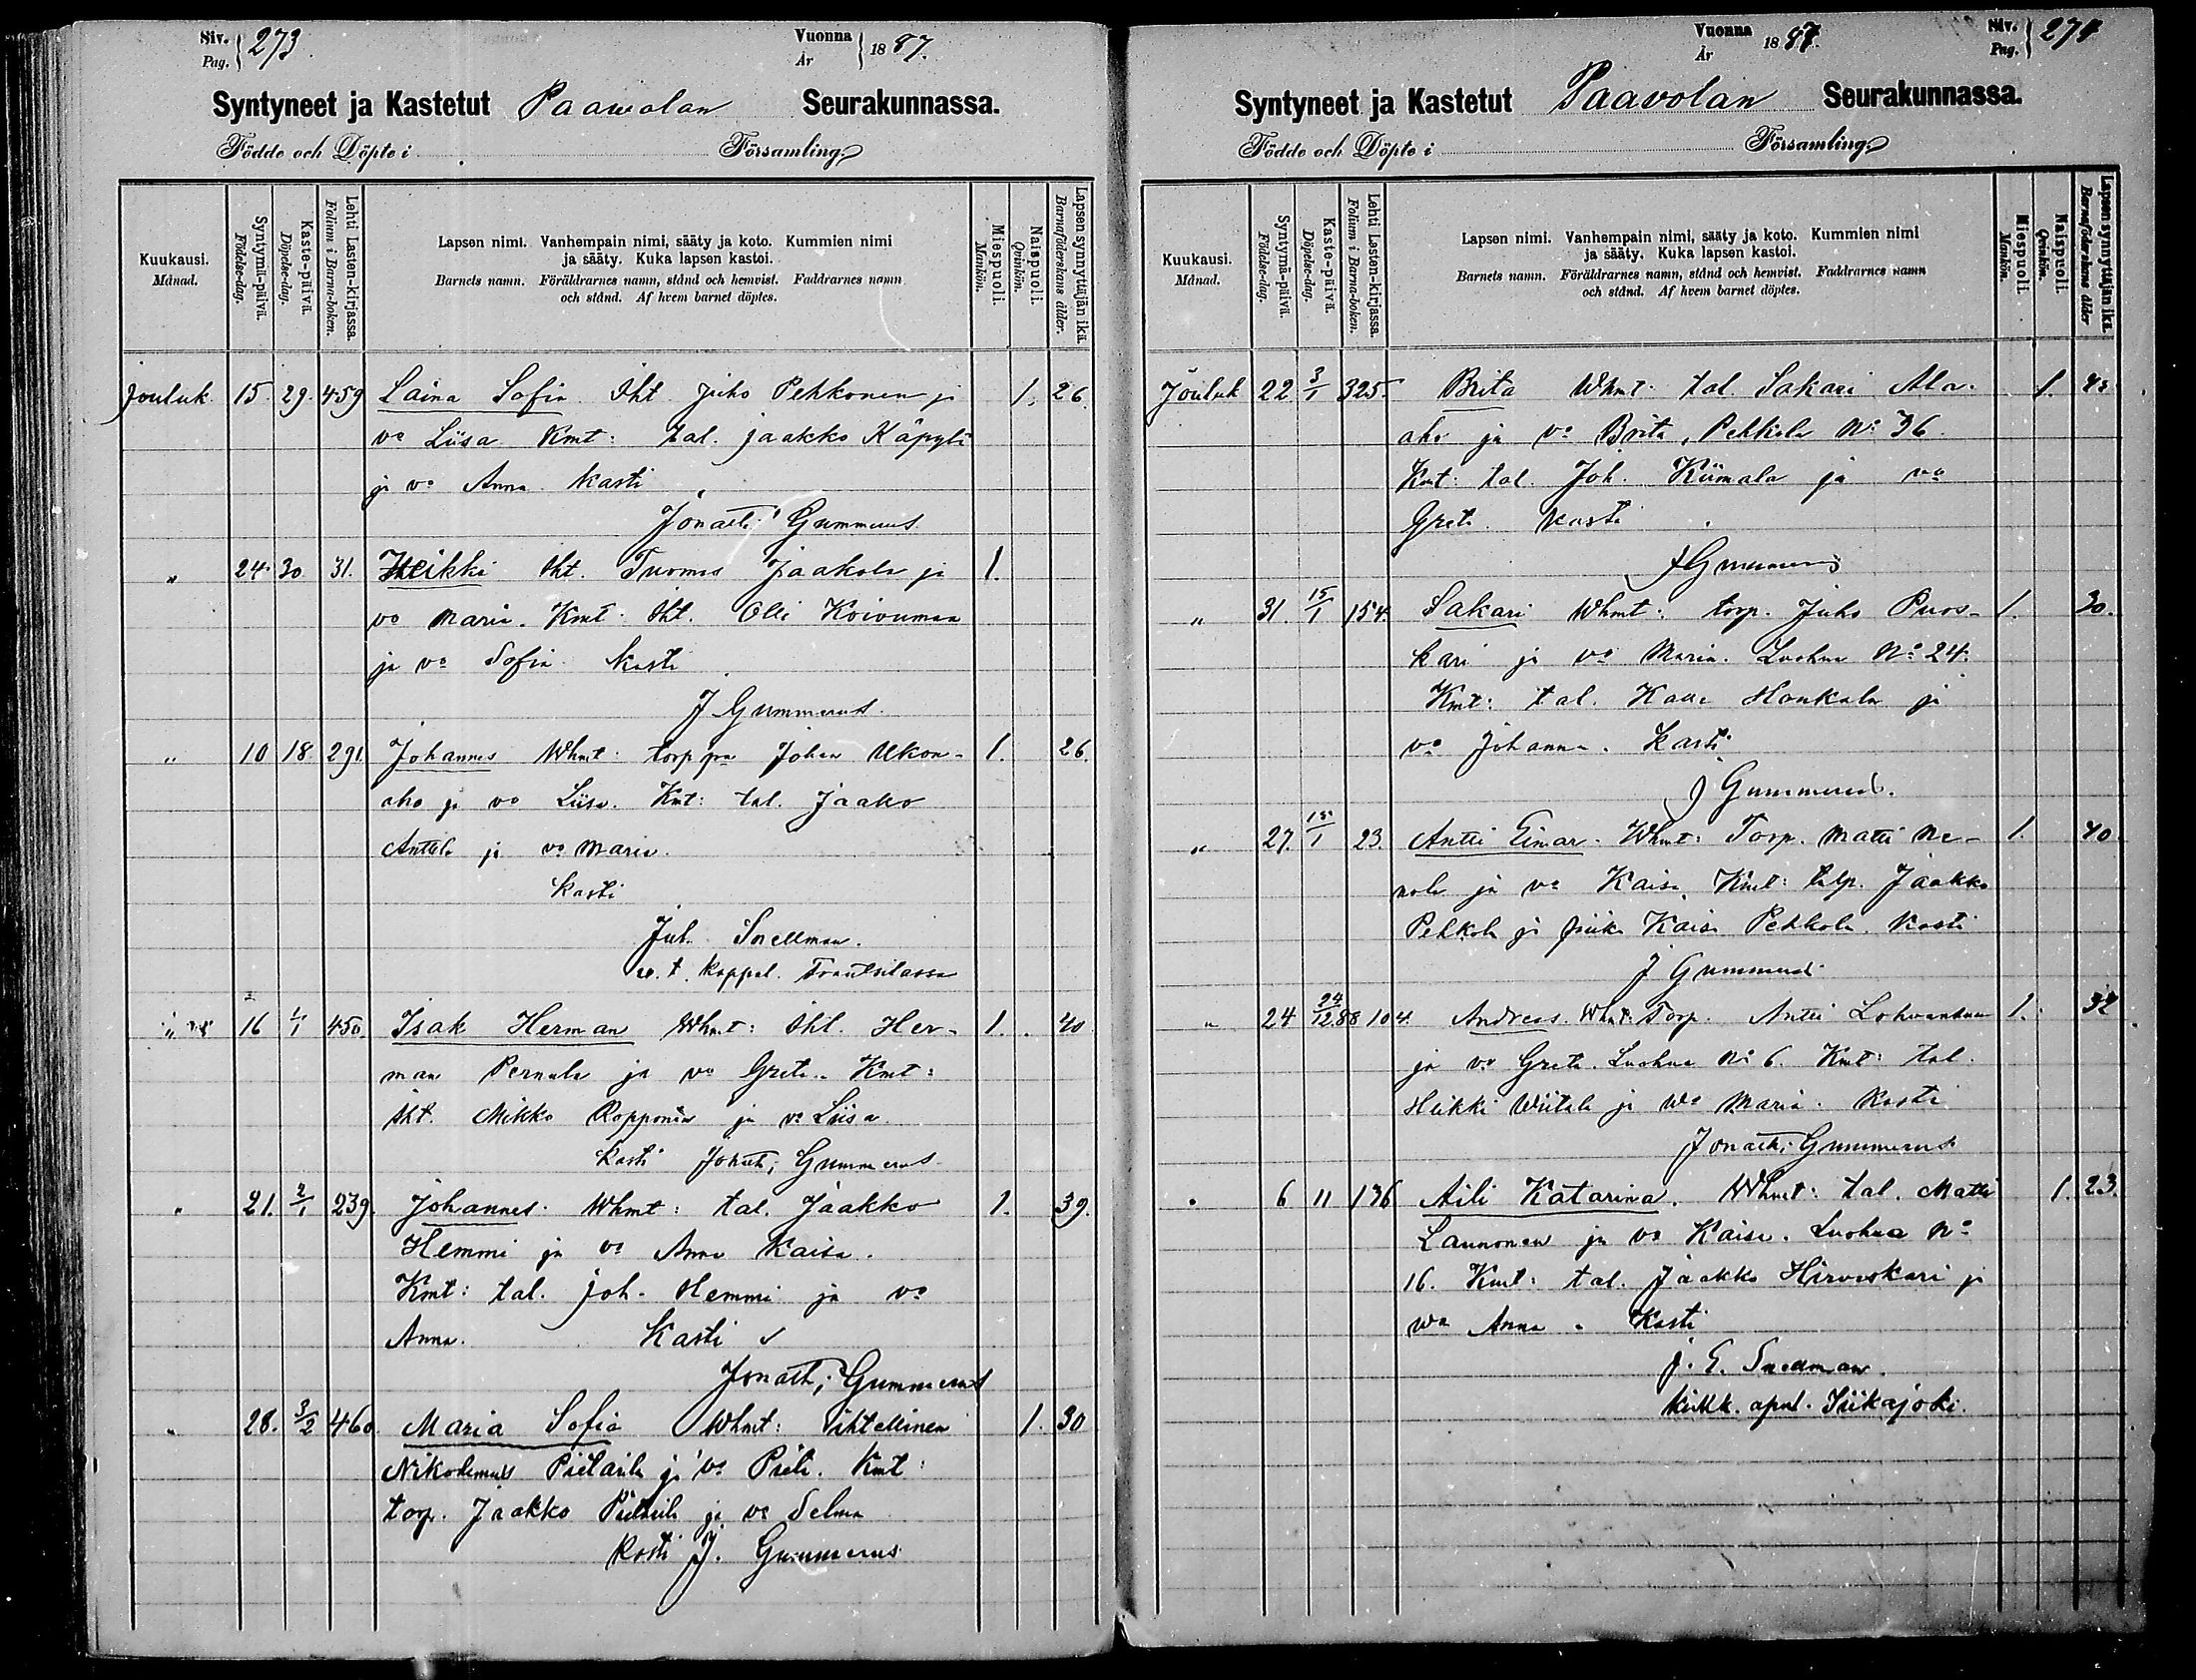 Siv. 273 Vuonna 1887.
Pag. År
Syntyneet ja Kastetut Paawolan Seurakunnassa.
Födde och Döpte i Församling
Kuukausi. Månad.
Syntymä-päivä. Födelse-dag.
Kaste-päivä. Döpelse-dag.
Lehti Lasten-kirjassa. Folium i Barna-boken.
Lapsen nimi. Vanhempain nimi, sääty ja koto. Kummien nimi
ja sääty. Kuka lapsen kastoi.
Barnets namn. Föräldrarnes namn, stånd och hemvist. Faddrarnes namn
och stånd. Af hvem barnet döptes.
Miespuoli. Mankön.
Naispuoli. Qvinkön.
Lapsen synnyttäjän ikä. Barnaföderskans ålder.
Jouluk. 15. 29. 459 Laina Sofia Iht. Juho Pehkonen ja 1. 26.
vo Liisa Kmt: tal. Jaakko Käpylä
ja vo Anna Kasti
Jonath; Gummerus
" 24. 30. 31. Heikki Iht. Tuomas Jaakola ja 1.
vo Maria. Kmt. Iht. Olli Koivumaa
ja vo Sofia Kasti
J Gummerus.
" 10 18. 291. Johannes Whmt: torppa Johan Ukon- 1. 26.
aho ja vo Liisa. Kmt: tal. Jaako
Anttila ja vo Maria.
Kasti
Joh. Snellman.
v. t. kappal. Frantsilassa
" 16 4/1 450. Isak Herman Whmt: Iht. Her- 1. 40
man Pernula ja vo Greta. Kmt:
Iht. Mikko Ropponen ja vo Liisa.
Kasti Jonath; Gummerus
" 21. 2/1 239. Johannes. Whmt: tal. Jaakko 1. 39.
Hemmi ja vo Anna Kaisa.
Kmt: tal. Joh. Hemmi ja vo
Anna. Kasti
Jonath; Gummerus
" 28. 3/2 460. Maria Sofia Whmt: ihtellinen 1. 30
Nikodemus Pietarila ja vo Priita. Kmt:
torp. Jaakko Pietarila ja vo Selma
Kasti J. Gummerus
Vuonna 1887. Siv. 274
År Pag.
Syntyneet ja Kastetut Paavolan Seurakunnassa.
Födde och Döpte i Församling
Kuukausi. Månad.
Syntymä-päivä. Födelse-dag.
Kaste-päivä. Döpelse-dag.
Lehti Lasten-kirjassa. Folium i Barna-boken.
Lapsen nimi. Vanhempain nimi, sääty ja koto. Kummien nimi
ja sääty. Kuka lapsen kastoi.
Barnets namn. Föräldrarnes namn, stånd och hemvist. Faddrarnes namn
och stånd. Af hvem barnet döptes.
Miespuoli. Mankön.
Naispuoli. Qvinkön.
Lapsen synnyttäjän ikä. Barnaföderskans ålder
Jouluk 22 3/1 325. Brita Whmt. tal. Sakari Ala- 1.
aho ja vo Brita, Pehkola No 36.
Kmt: tal. Joh. Kiimala ja vo
Greta Kasti
J Gummerus
" 31. 15/1 154. Sakari Whmt: torp. Juho Puos- 1. 30.
kari ja vo Maria. Luohua No 24.
Kmt: tal. Kalle Honkala ja
vo Johanna. Kasti
J Gummerus.
" 27. 15/1 23. Antti Einar. Whmt: Torp. Matti Me- 1. 40
nola ja vo Kaisa, Kmt: talp. Jaakko
Pehkola ja piika Kaisa Pehkola. Kasti
J Gummerus
" 24 24/12.88 104. Andreas. Whmt: Torp. Antti Lohvantaa 1. 32
ja vo Greta. Luohua No 6. Kmt: tal.
Heikki Wiitala ja wo Maria. Kasti
Jonath; Gummerus
" 6 11 136 Aili Katarina. Whmt: tal. Matti 1. 23.
Launonen ja vo Kaisa. Luohua No
16. Kmt: tal. Jaakko Hirvoskari ja
wo Anna. Kasti
J. E. Snellman.
kirkk. apul. Siikajoki.